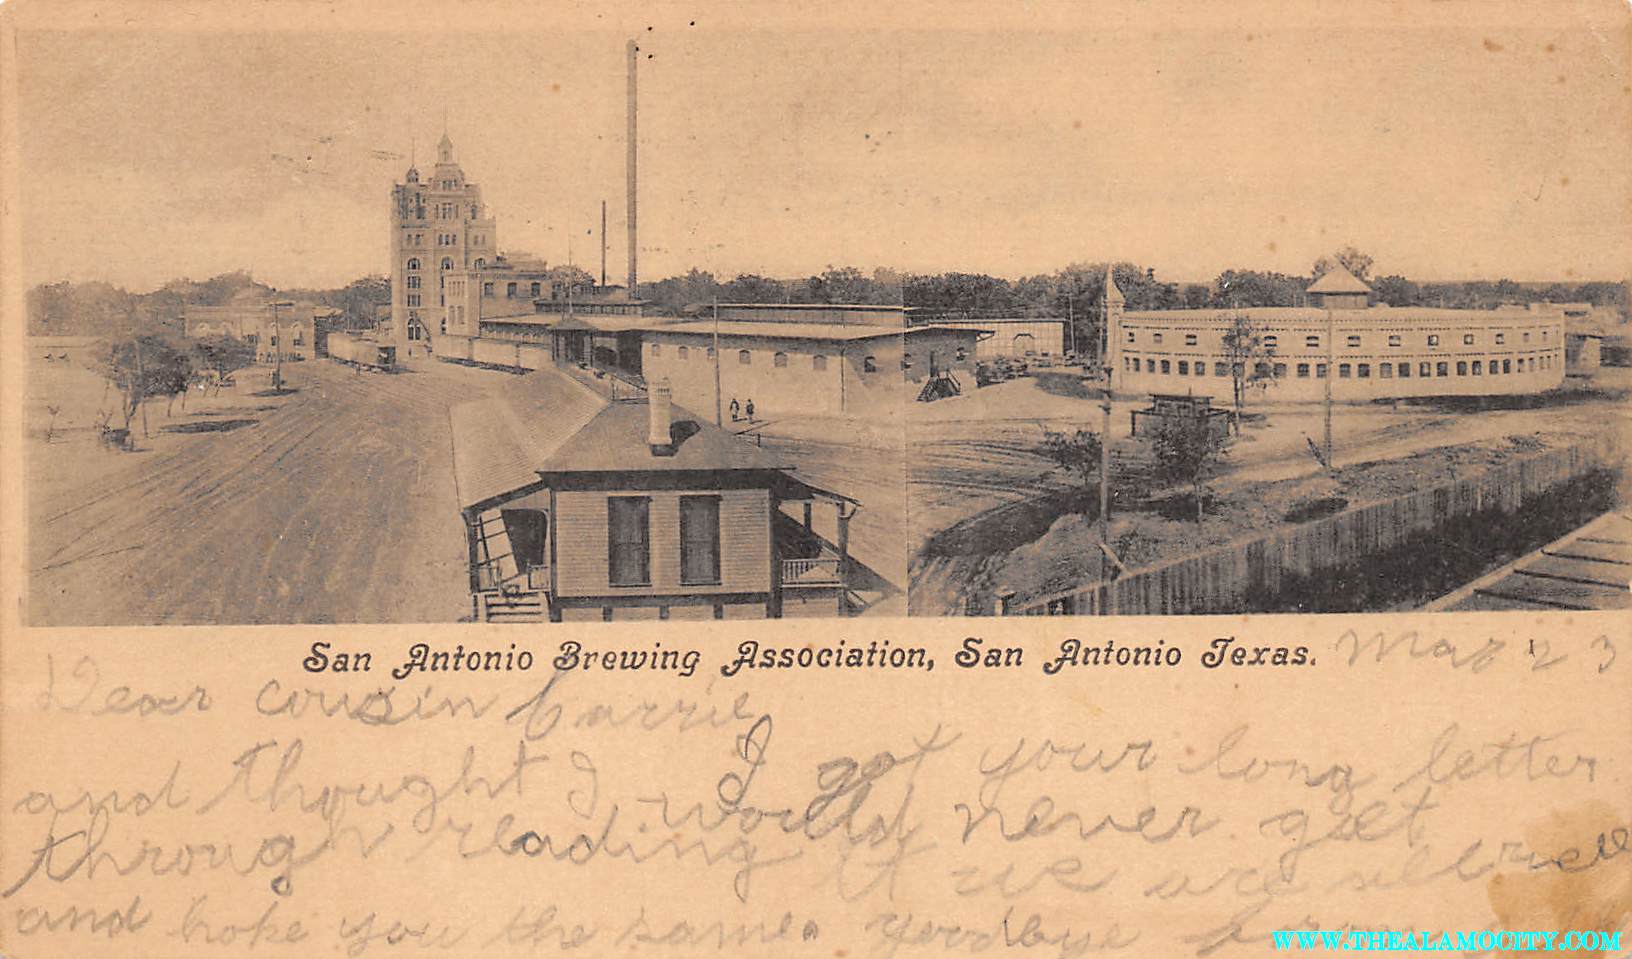 San Antonio Brewing Association, San Antonio Texas.
Mar 23
Dear cousin Carrie
I got your long letter
and thought I would never get
through reading it we are all well
and hoke you the same. goodbye
WWW.THEALAMOCITY.COM